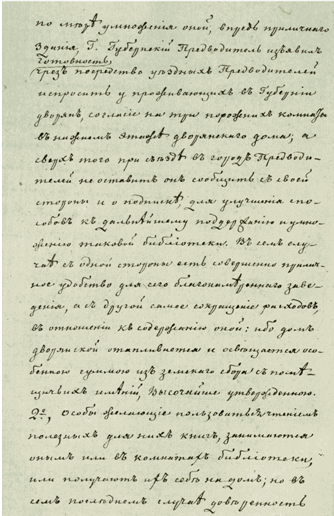 по мѣрѣ умноженія оной, впредь приличнаго
зданія, Г. Губернскій Предводитель изъявилъ
готовность,
чрезъ посредство уѣздныхъ Предводителей
испросить у проживающихъ въ Губерніи
дворянъ, согласіе на три порожнихъ комнаты
въ нижнемъ этажѣ дворянскаго дома; а
сверхъ того при съѣздѣ въ городъ Предводи-
телей не оставитъ онъ сообщить съ своей
стороны и о подпискѣ, для улучшенія спо-
собовъ къ дальнѣйшему поддержанію и умно-
женію таковой библіотеки. Въ семъ слу-
чаѣ съ одной стороны есть совершенно прилич-
ное удобство для сего благонамѣреннаго заве-
денія, а съ другой самое сокращеніе расходовъ,
въ отношеніи къ содержанію оной: ибо домъ
дворянской отапливается и освѣщается осо-
бенною суммою изъ земскаго сбора съ помѣ-
щичьихъ имѣній, Высочайше утвержденною.
2е, Особы желающіе пользоваться чтеніемъ
полезныхъ для нихъ книгъ, занимаются
онымъ или въ комнатахъ библіотеки,
или получаютъ ихъ къ себѣ на домъ; но въ
семъ послѣднемъ случаѣ довѣренность